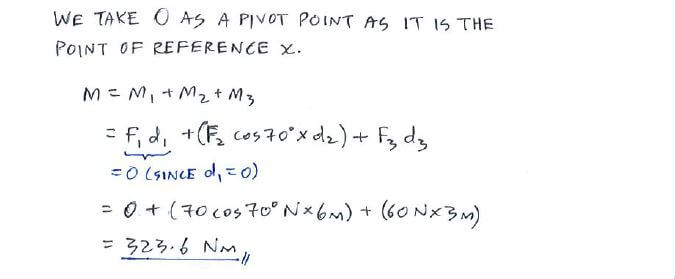 WE TAKE O AS A PIVOT POINT AS IT IS THE
POINT OF REFERENCE X.
M = M₁ + M₂ + M₃
= F₁d₁ + (F₂ cos70° x d₂) + F₃ d₃
= 0 (SINCE d₁ = 0)
= 0 + (70 cos 70° N x 6M) + (60 N x 3M)
= 323.6 NM //